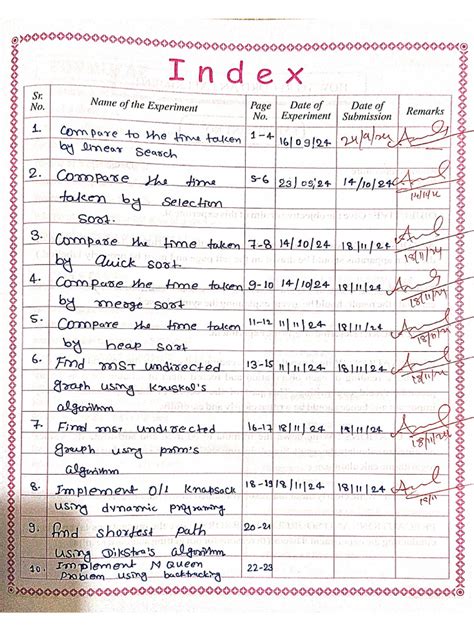 Index
Sr. No. Name of the Experiment Page No. Date of Experiment Date of Submission Remarks
1. Compare to the time taken 1-4 16/09/24 24/9/24
by linear search
2. Compare the time 5-6 23/09/24 14/10/24
taken by selection 14/11/24
Sort.
3. Compare the time taken 7-8 14/10/24 18/11/24
by Quick sort. 18/11/24
4. Compare the time taken 9-10 14/10/24 18/11/24
by merge sort 18/11/24
5. Compare the time taken 11-12 11/11/24 18/11/24
by heap sort 18/11/24
6. Find MST undirected 13-15 11/11/24 18/11/24
graph using Kruskal's 18/11/24
algorithm
7. Find MST undirected 16-17 18/11/24 18/11/24
graph using prim's 18/11/24
algorithm
8. Implement 0/1 Knapsack 18-19 18/11/24 18/11/24
using dynamic programing 18/11
9. find shortest path 20-21
using Dikstra's algorithm
10. Implement N Queen 22-23
Problem using backtracking